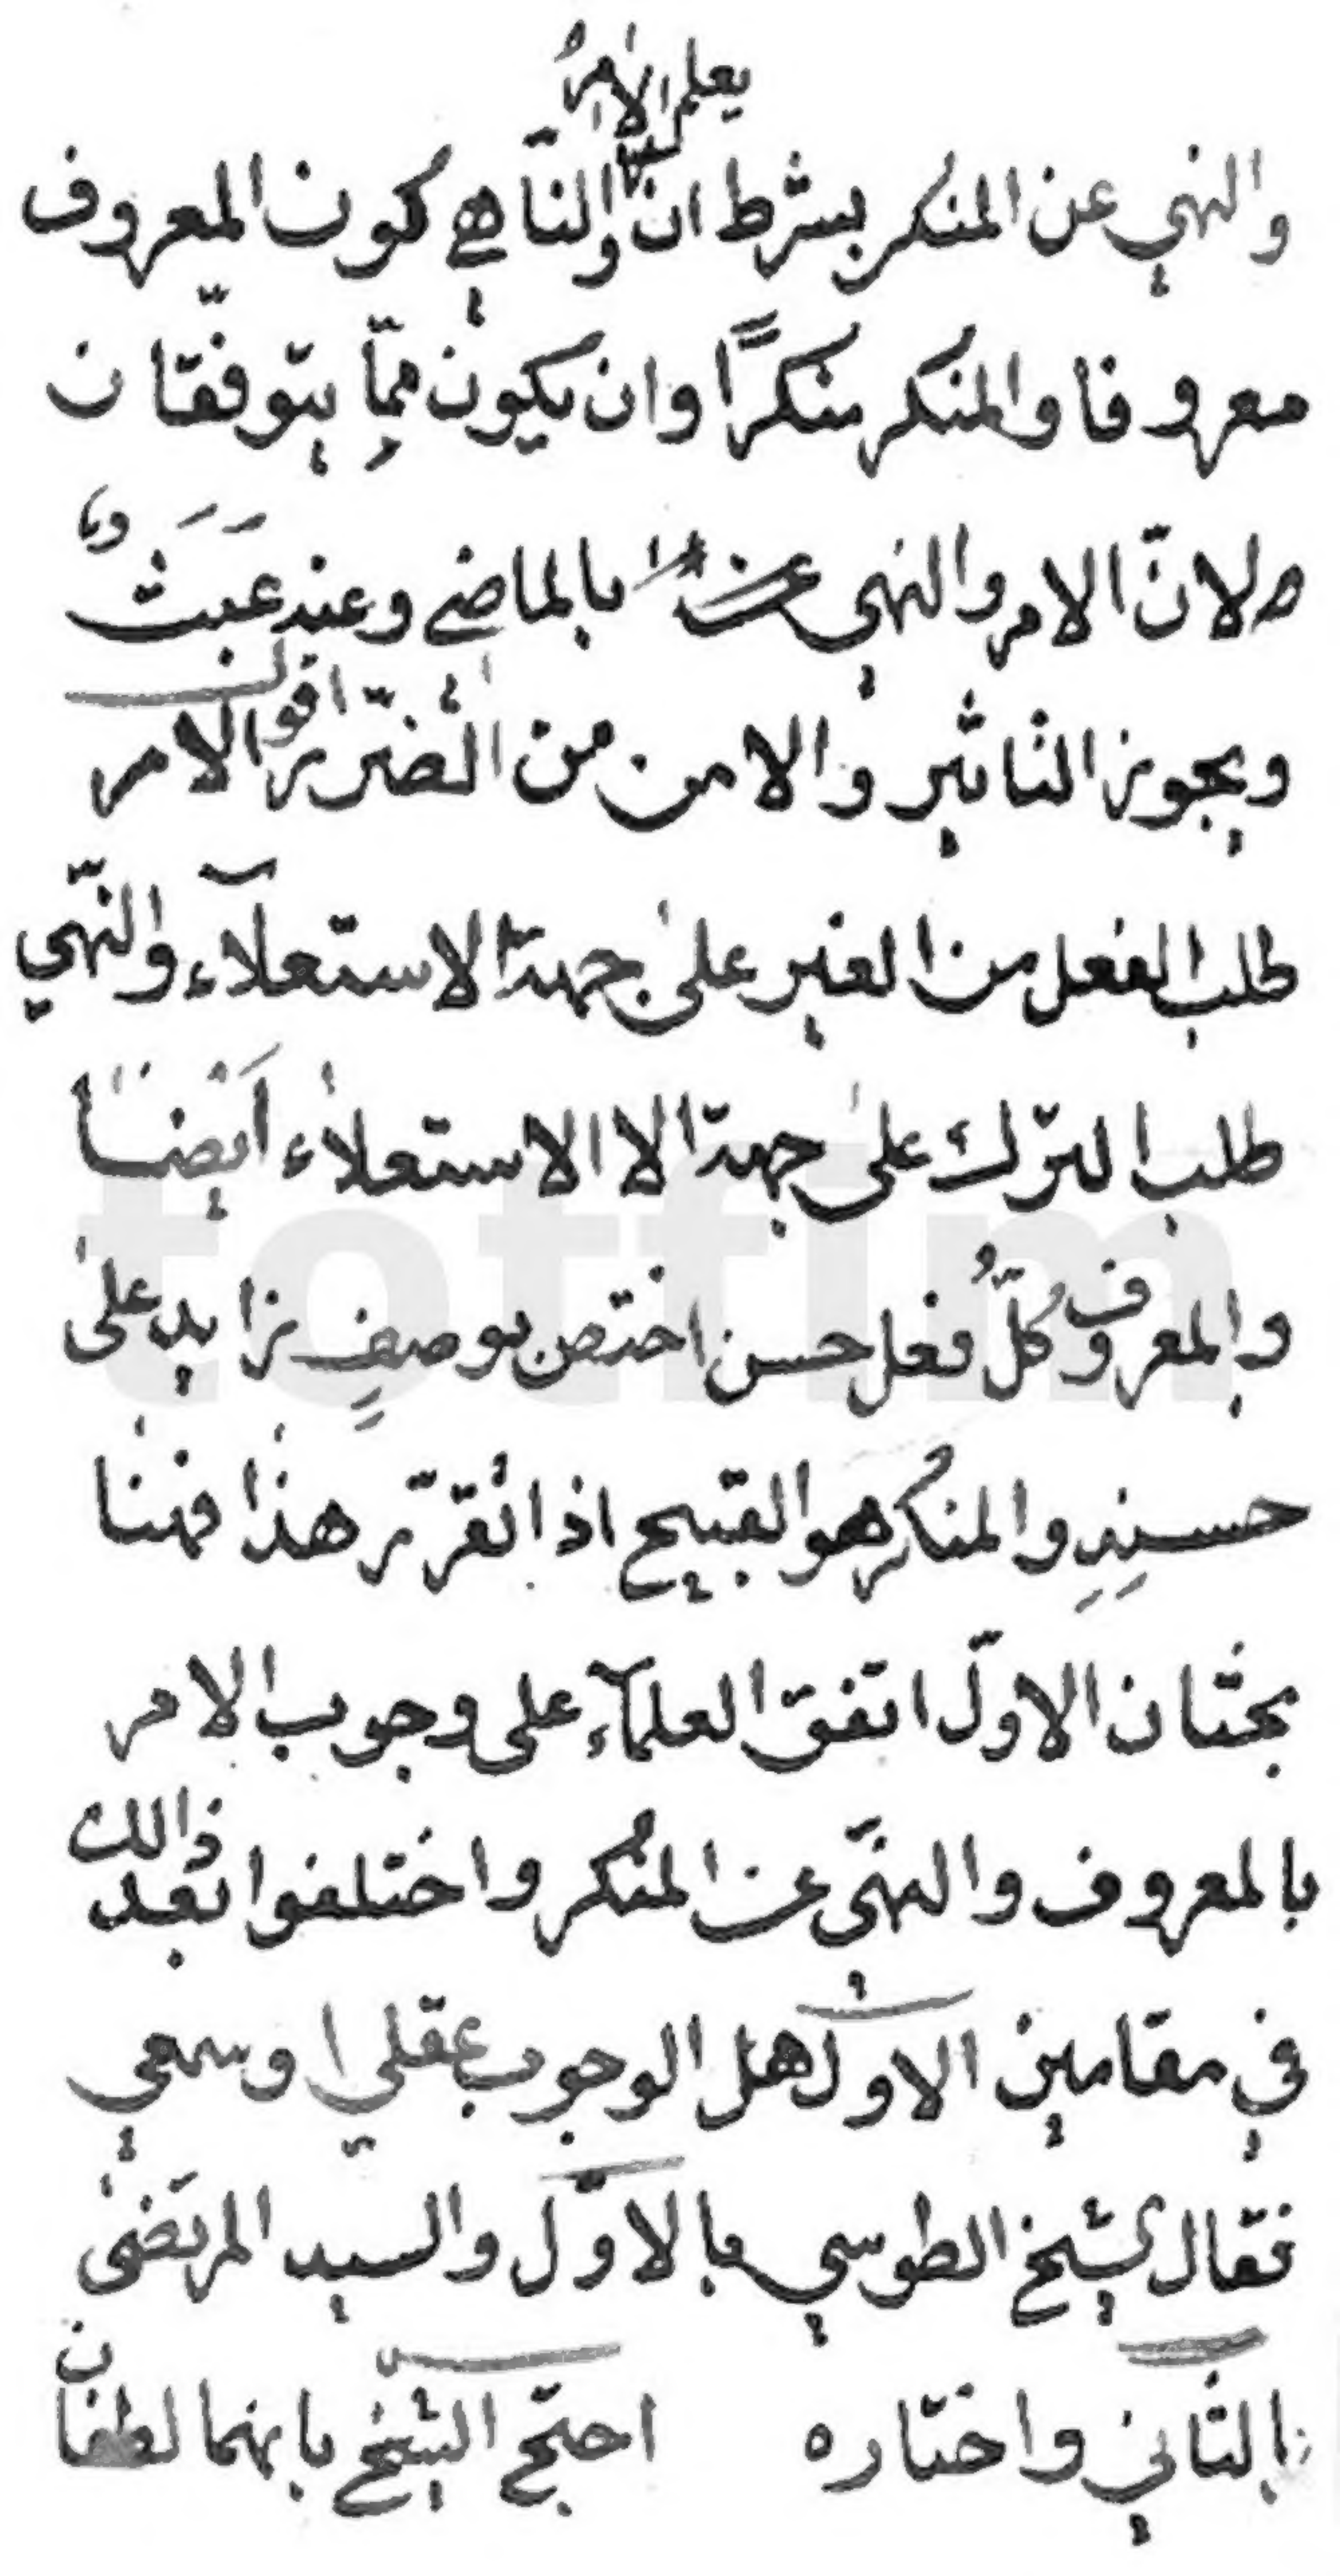 يعلم الامر
والنهي عن المنكر بشرط ان والناهي كون المعروف
معروفا والمنكر منكرًا وان يكون ممّا يتوقّعان
لانّ الامر والنهي بالماضي وعنه عبث
ويجوز التاثير والامن من الضرر اقول الامر
طلب الفعل من الغير على جهة الاستعلآء والنّهي
طلب الترك على جهة الا الاستعلاء ايضا
والمعروف كلّ فعل حسن اختص بوصفٍ زايد على
حسنه والمنكر هو القبيح اذا تقرّر هذا فهنا
بحثان الاوّل اتفق العلمآء على وجوب الامر
بالمعروف والنهّي عن المنكر واختلفوا بعد ذالك
في مقامين الاول هل الوجوب عقلي او سمعي
فقال الشيخ الطوسي بالاوّل والسيد المرتضى
بالثاني واختاره احتج الشيخ بانهما لطفان
totfim